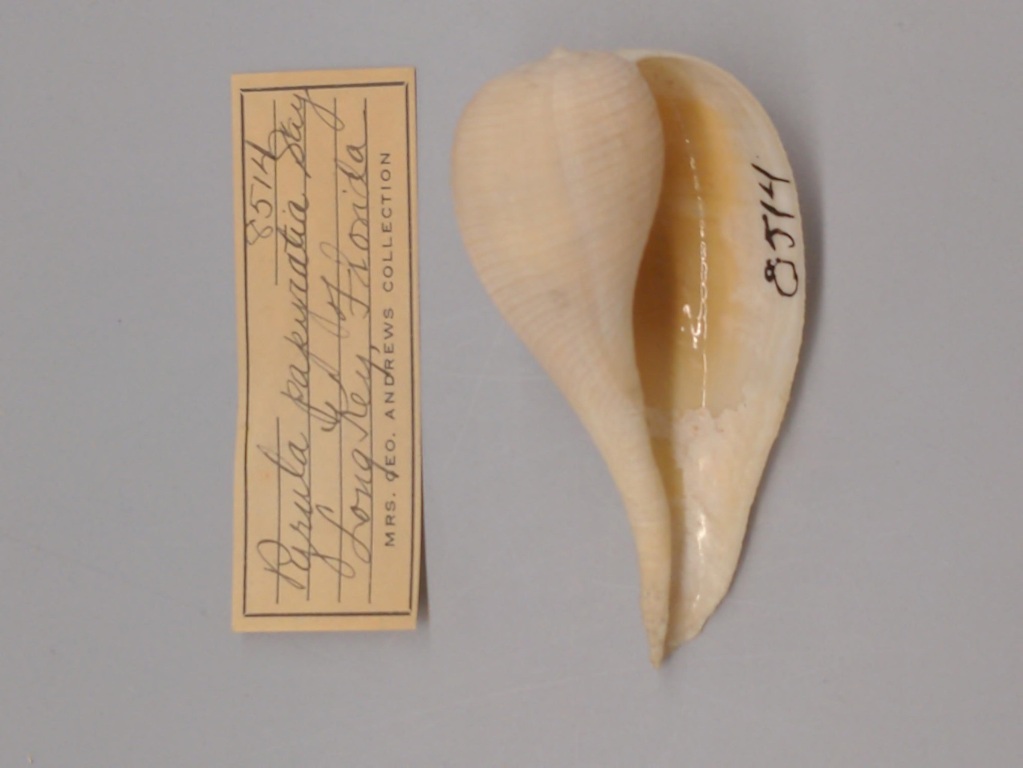 8514
Pyrula papyratia Say
Long Key, Florida
MRS. GEO. ANDREWS COLLECTION
8514